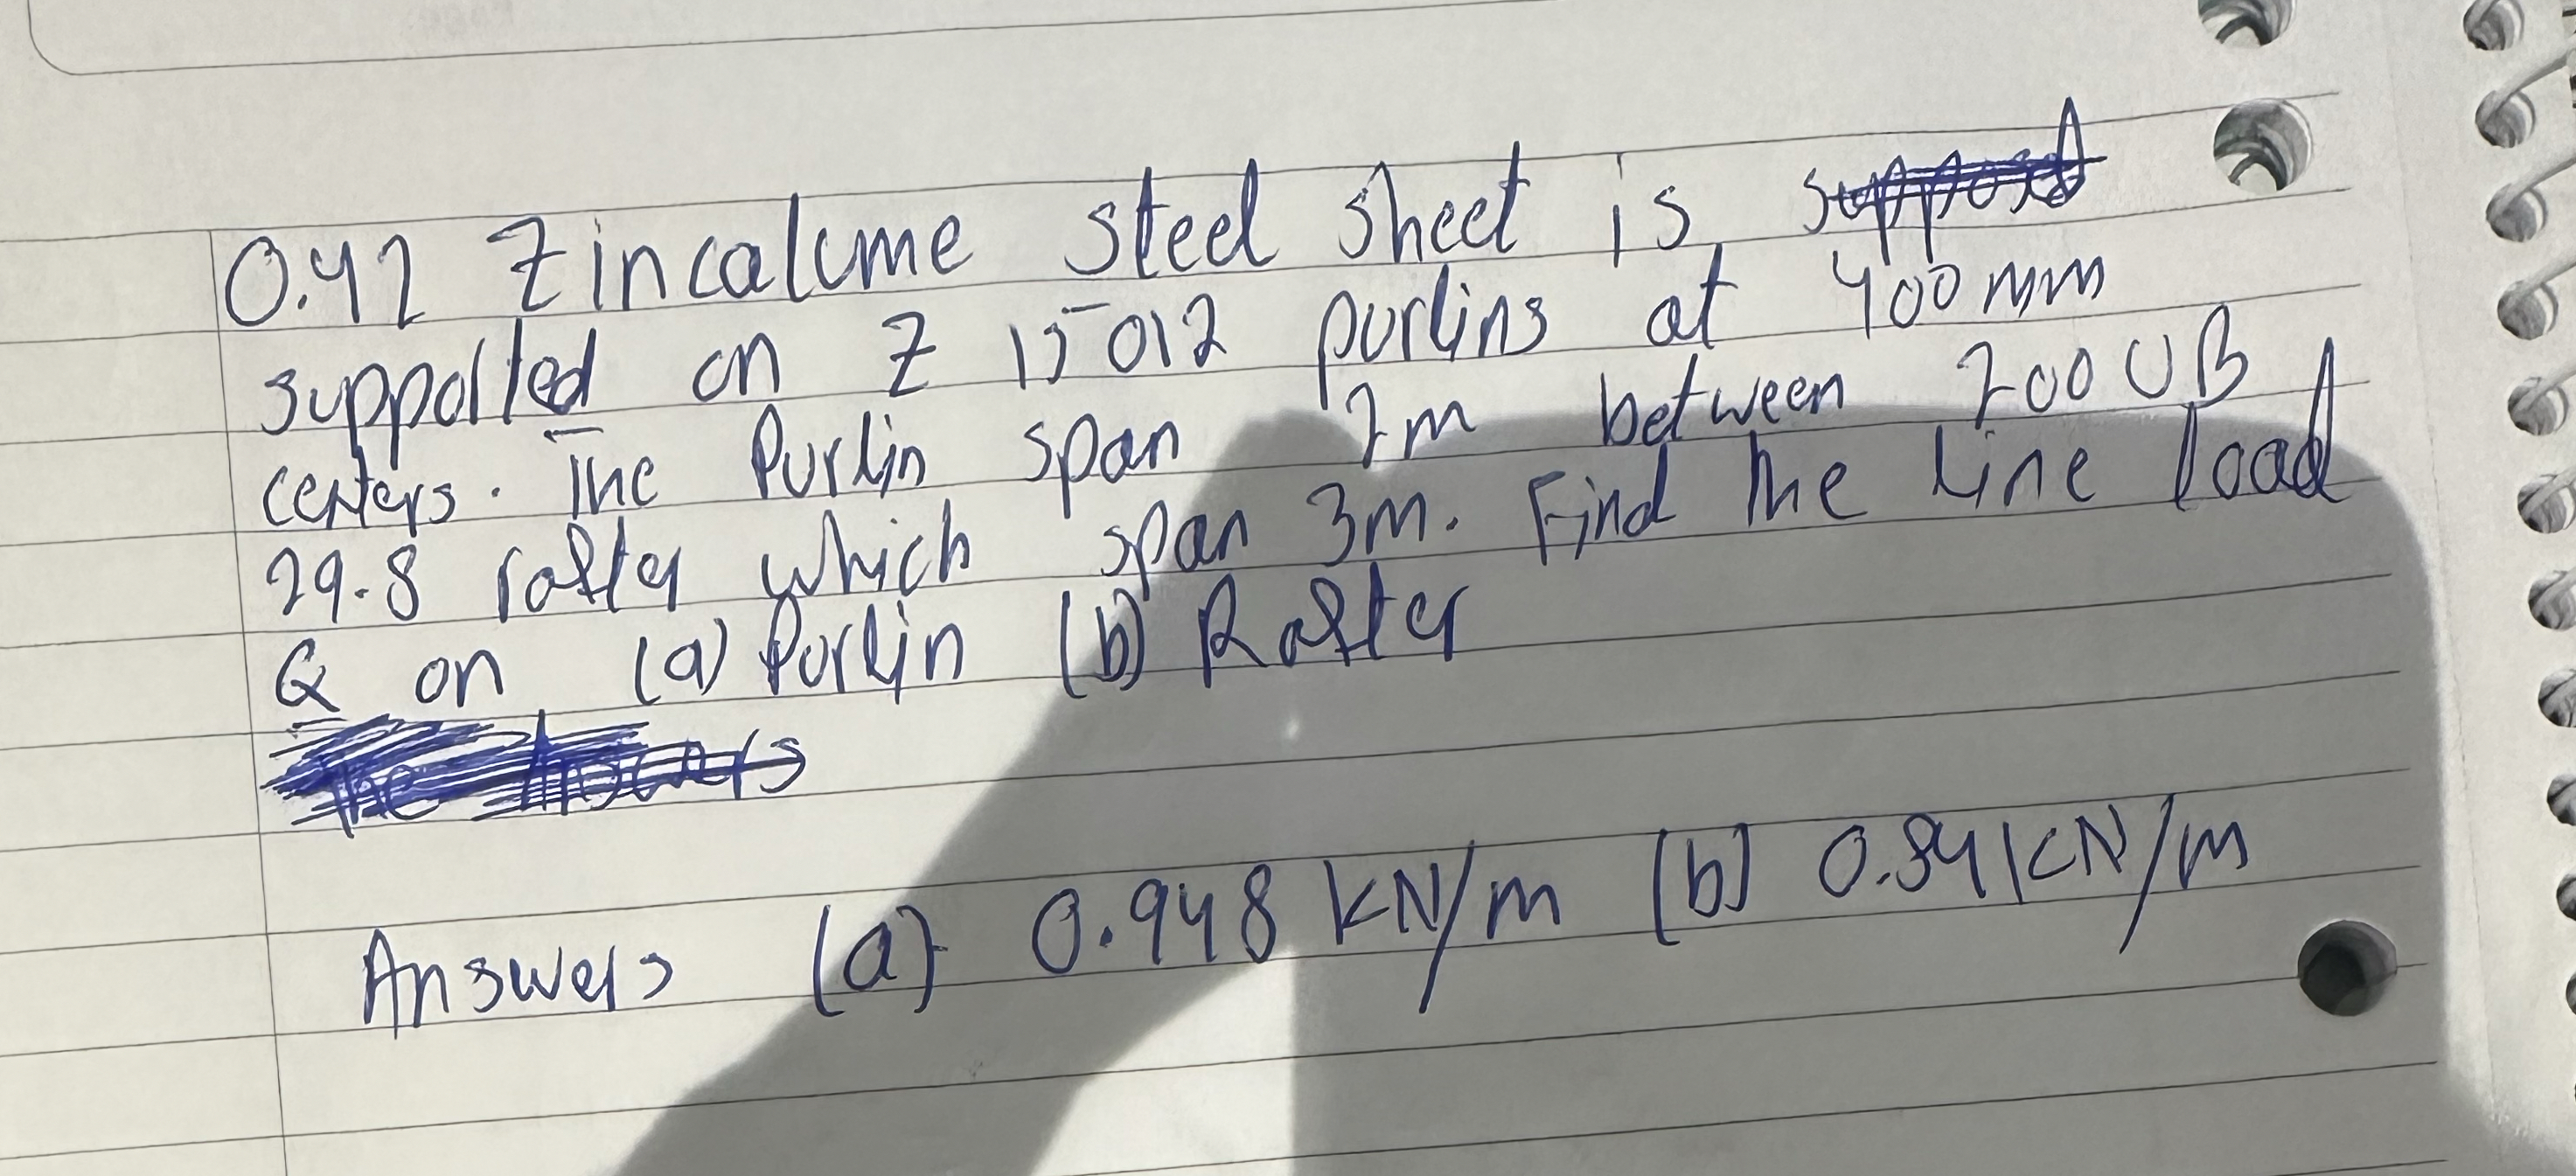 0.42 Zincalume steel sheet is
supported on Z 15012 purlins at 400mm
centers. The Purlin span 2m between 200UB
29.8 rafter which span 3m. Find the Line load
Q on (a) Purlin (b) Rafter
Answers (a) 0.948 KN/m (b) 0.84 KN/m